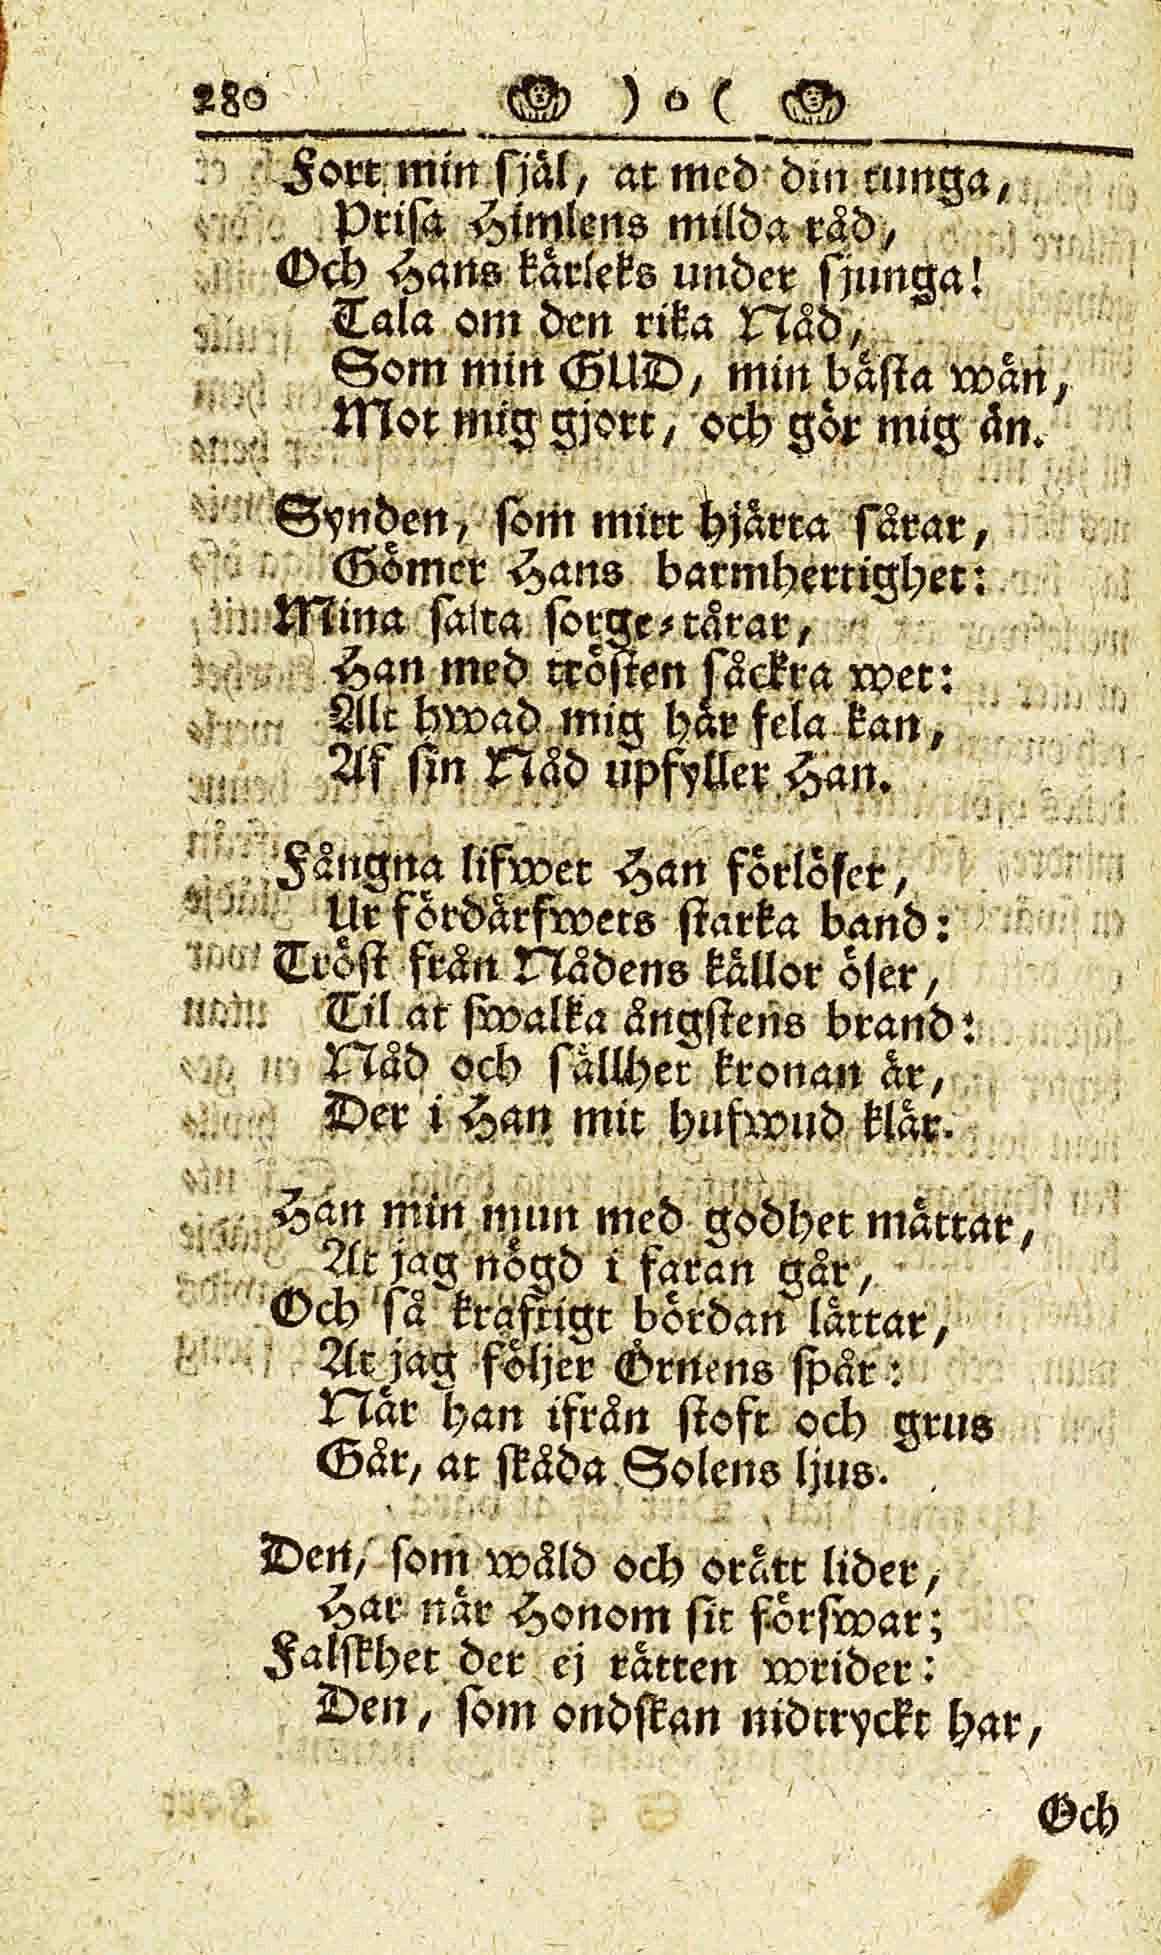 280 ) o (
Fort min själ, at med din tunga,
Prisa Himlens milda råd,
Och Hans kärleks under sjunga!
Tala om den rika Nåd,
Som min GUD, min bästa wän,
Mot mig gjort, och gör mig än.
Synden, som mitt hjärta sårar,
Gömer Hans barmhertighet:
Mina salta sorge-tårar,
Han med trösten såckra wet:
Alt hwad mig här fela kan,
Af sin Nåd upfyller Han.
Fångna lifwet Han förlöser,
Ur fördärfwets starka band:
Tröst från Nådens källor öser,
Til at swalka ångstens brand:
Nåd och sällhet kronan är,
Der i Han mit hufwud klär.
Han min mun med godhet mättar,
At jag nögd i faran går,
Och så kraftigt bördan lättar,
At jag följer Örnens spår:
När han ifrån stoft och grus
Går, at skåda Solens ljus.
Den, som wåld och orätt lider,
Har när Honom sit förswar;
Falskhet der ej rätten wrider:
Den, som ondskan nidtryckt har,
Och